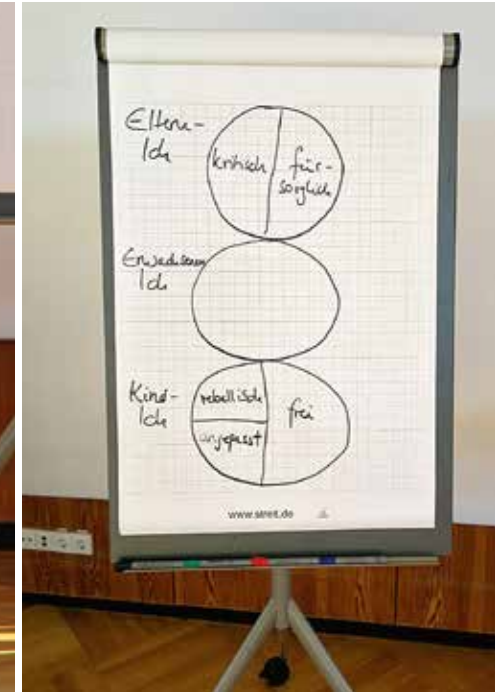 Eltern-
Ich
kritisch
für-
sorglich
Erwachsenen
Ich
Kind-
Ich
rebellisch
angepasst
frei
www.streit.de